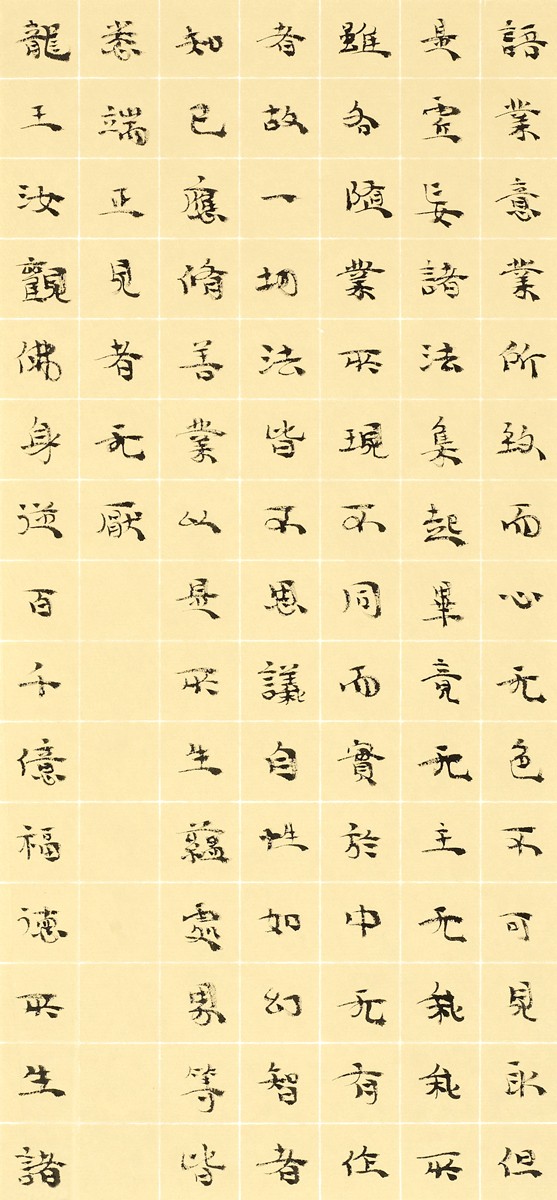 語業意業所致而心无色不可見取但
是虛妄諸法集起畢竟无主无我我所
雖各隨業所現不同而實於中无有作
者故一切法皆不思議自性如幻智者
知已應脩善業以是所生蘊處界等皆
悉端正見者无厭
龍王汝觀佛身從百千億福德所生諸